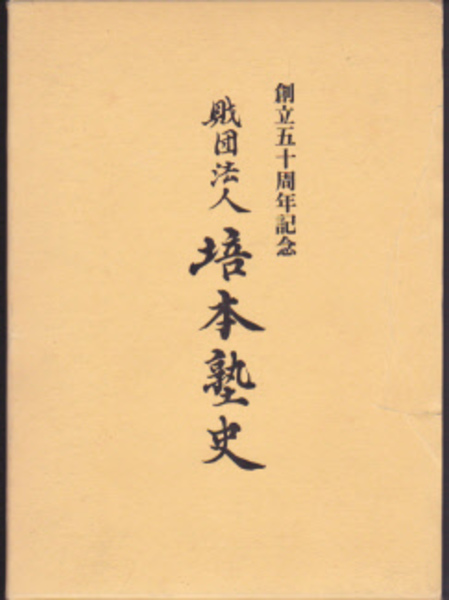 創立五十周年記念
財団法人 培本塾史